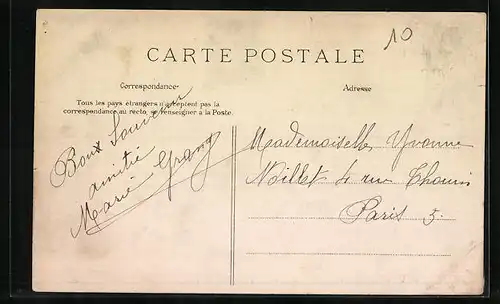 10
CARTE POSTALE
Correspondance
Adresse
Tous les pays étrangers n'acceptent pas la
correspondance au recto, se renseigner à la Poste.
Bons Souvenir
amitié
Marie
Mademoiselle Yvonne
4 rue Thouin
Paris 5.